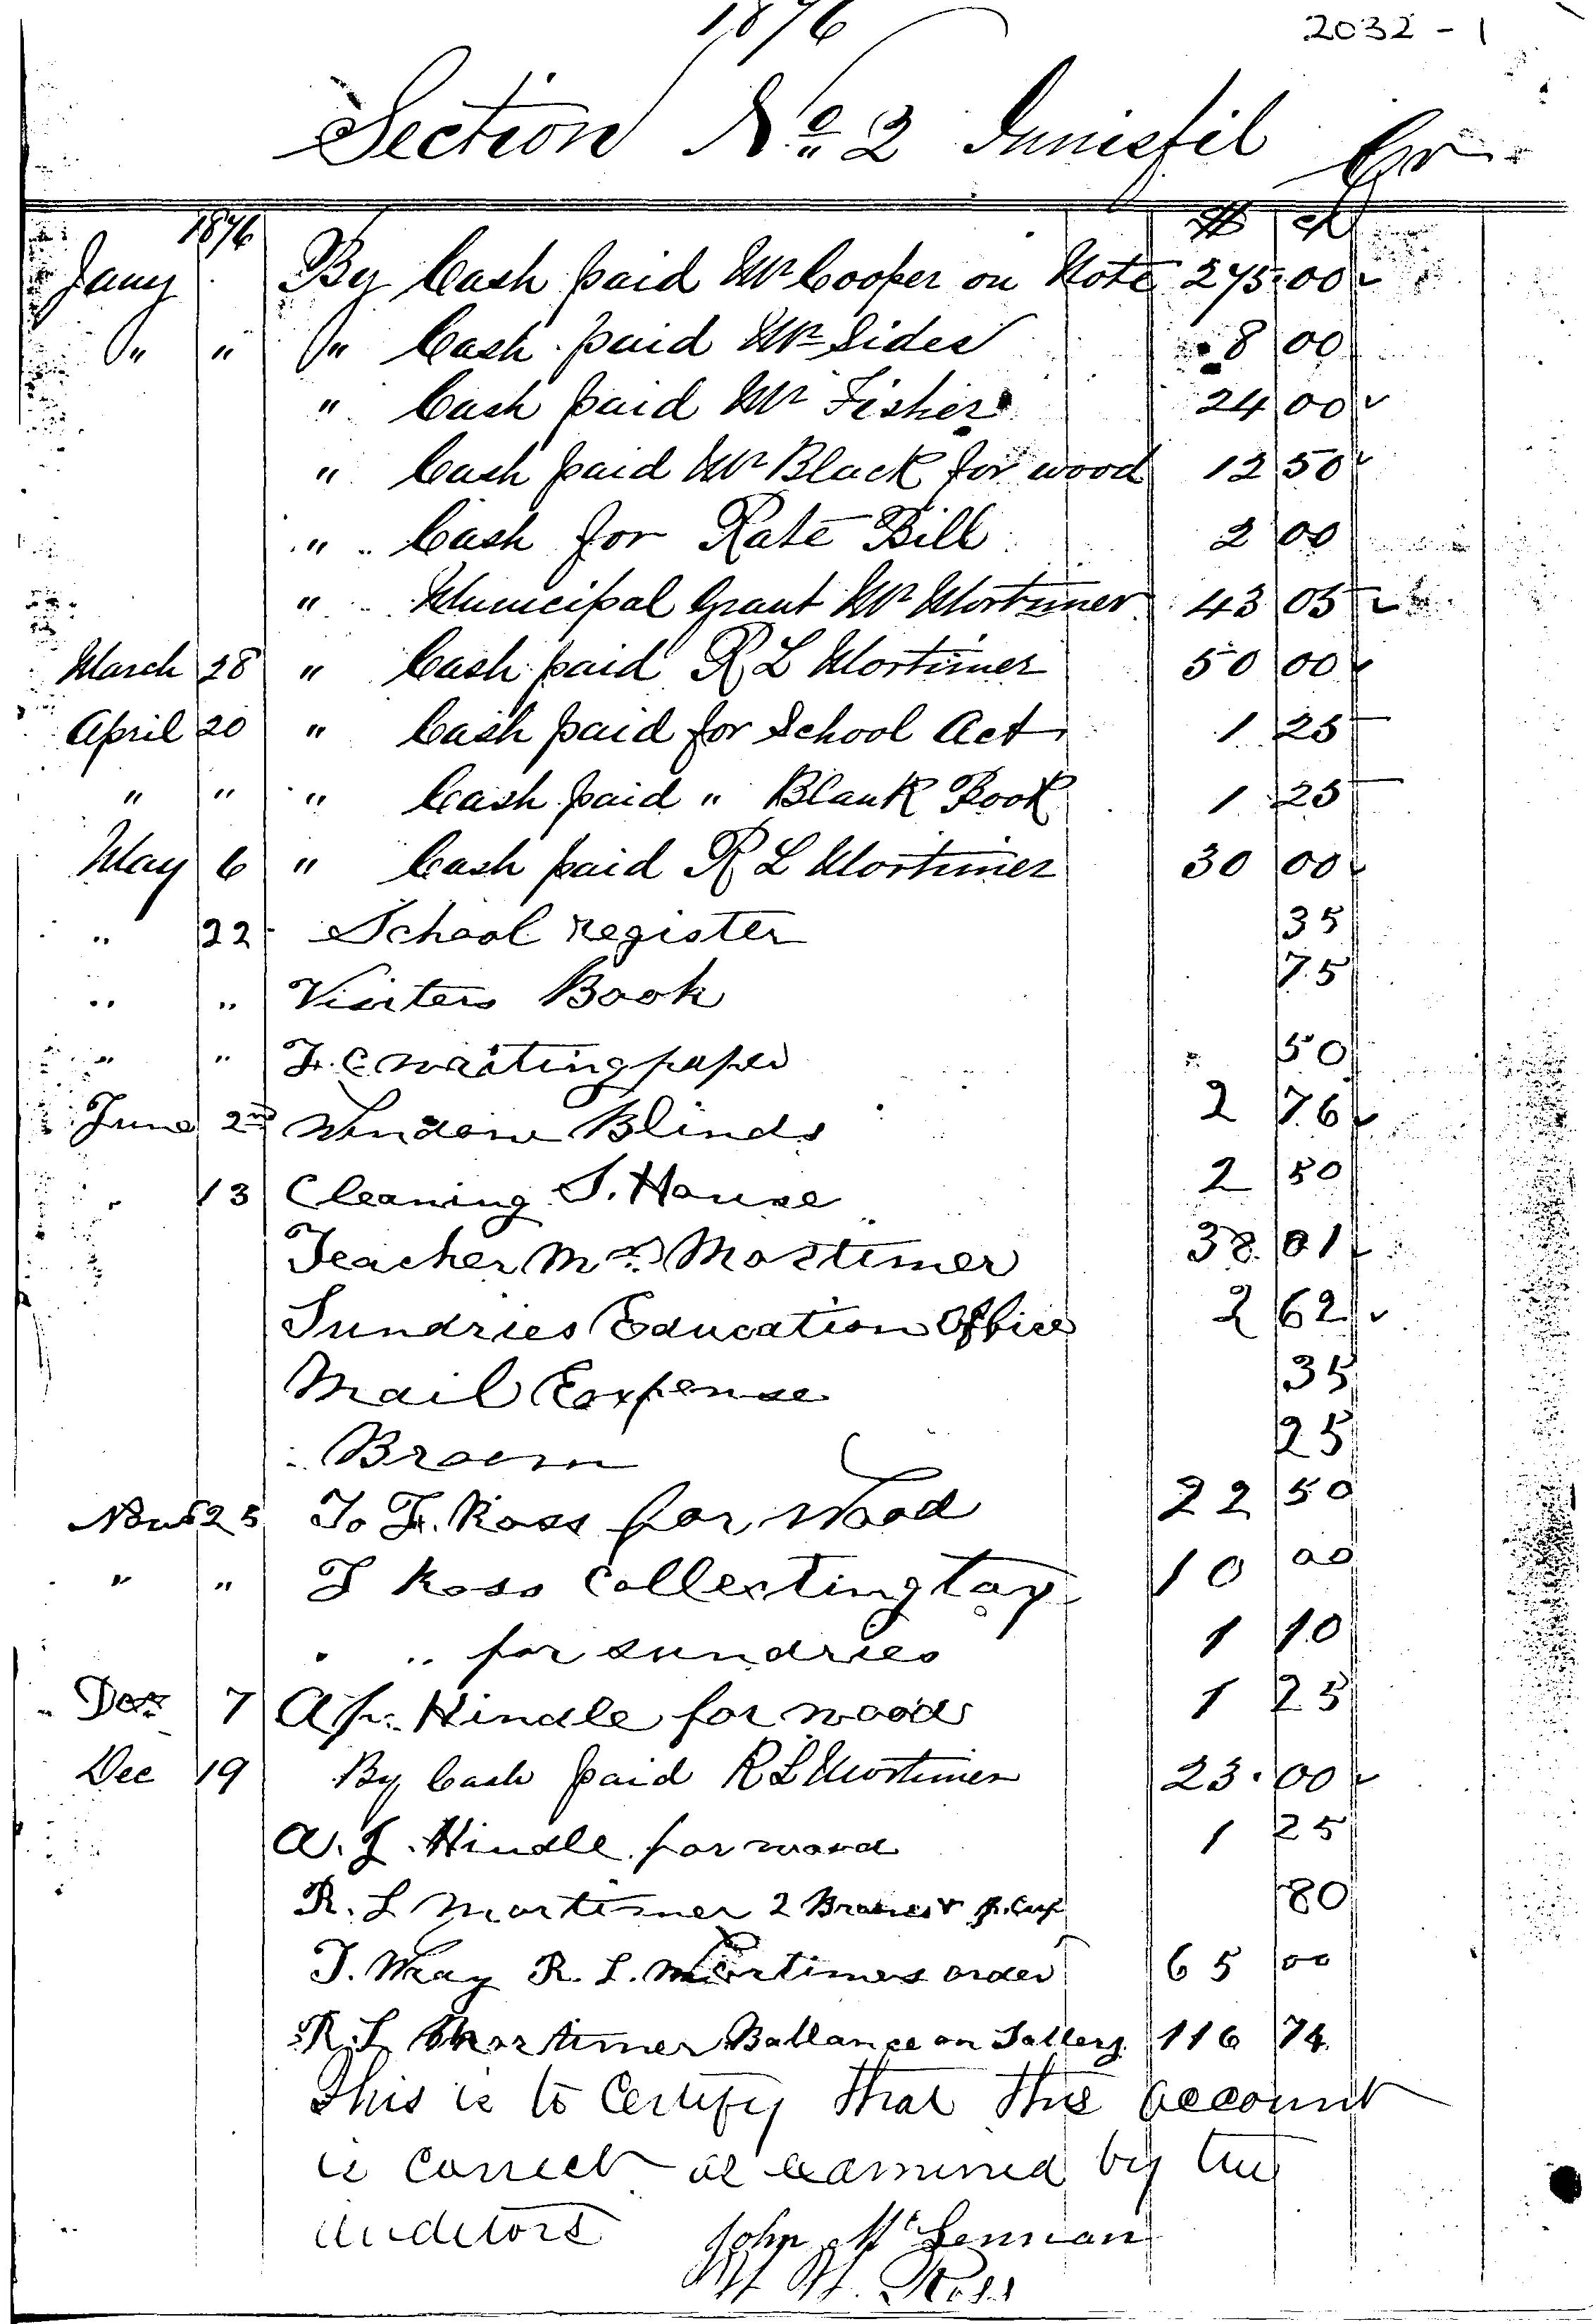 1876
2032 - 1
Section No 2 Innisfil Cr
1876 $ cts
Jany By Cash paid Mr Cooper on Note 275.00
" " " Cash paid Mr Sides 8 00
" Cash paid Mr Fisher 24 00
" Cash paid Mr Black for wood 12 50
" Cash for Rate Bill 2 00
" Municipal Grant Mr Mortimer 43 05
March 28 " Cash paid R L Mortimer 50 00
April 20 " Cash paid for School Act 1 25
" " " Cash paid " Blank Book 1 25
May 6 " Cash paid R L Mortimer 30 00
" 22 School register 35
" " Visiters Book 75
" " F. C writing paper 50
June 2nd Window Blinds 2 76
13 Cleaning S. House 2 50
Teacher Mr Mortimer 38 01
Sundries Education Office 2 62
Mail Expense 35
Broom 25
25 To F. Ross for Wood 22 50
" " Ross Collecting tax 10 00
" " for sundries 1 10
7 Hindle for wood 1 25
Dec 19 By Cash paid R L Mortimer 23.00
A. J. Hindle for wood 1 25
R. L Mortimer 2 80
T. Wray R. L. Mortimers order 65 00
R. L Mortimer Ballance on Sallery 116 74
This is to Certify that this account
is correct as examined by the
auditors John McLennan
Ross